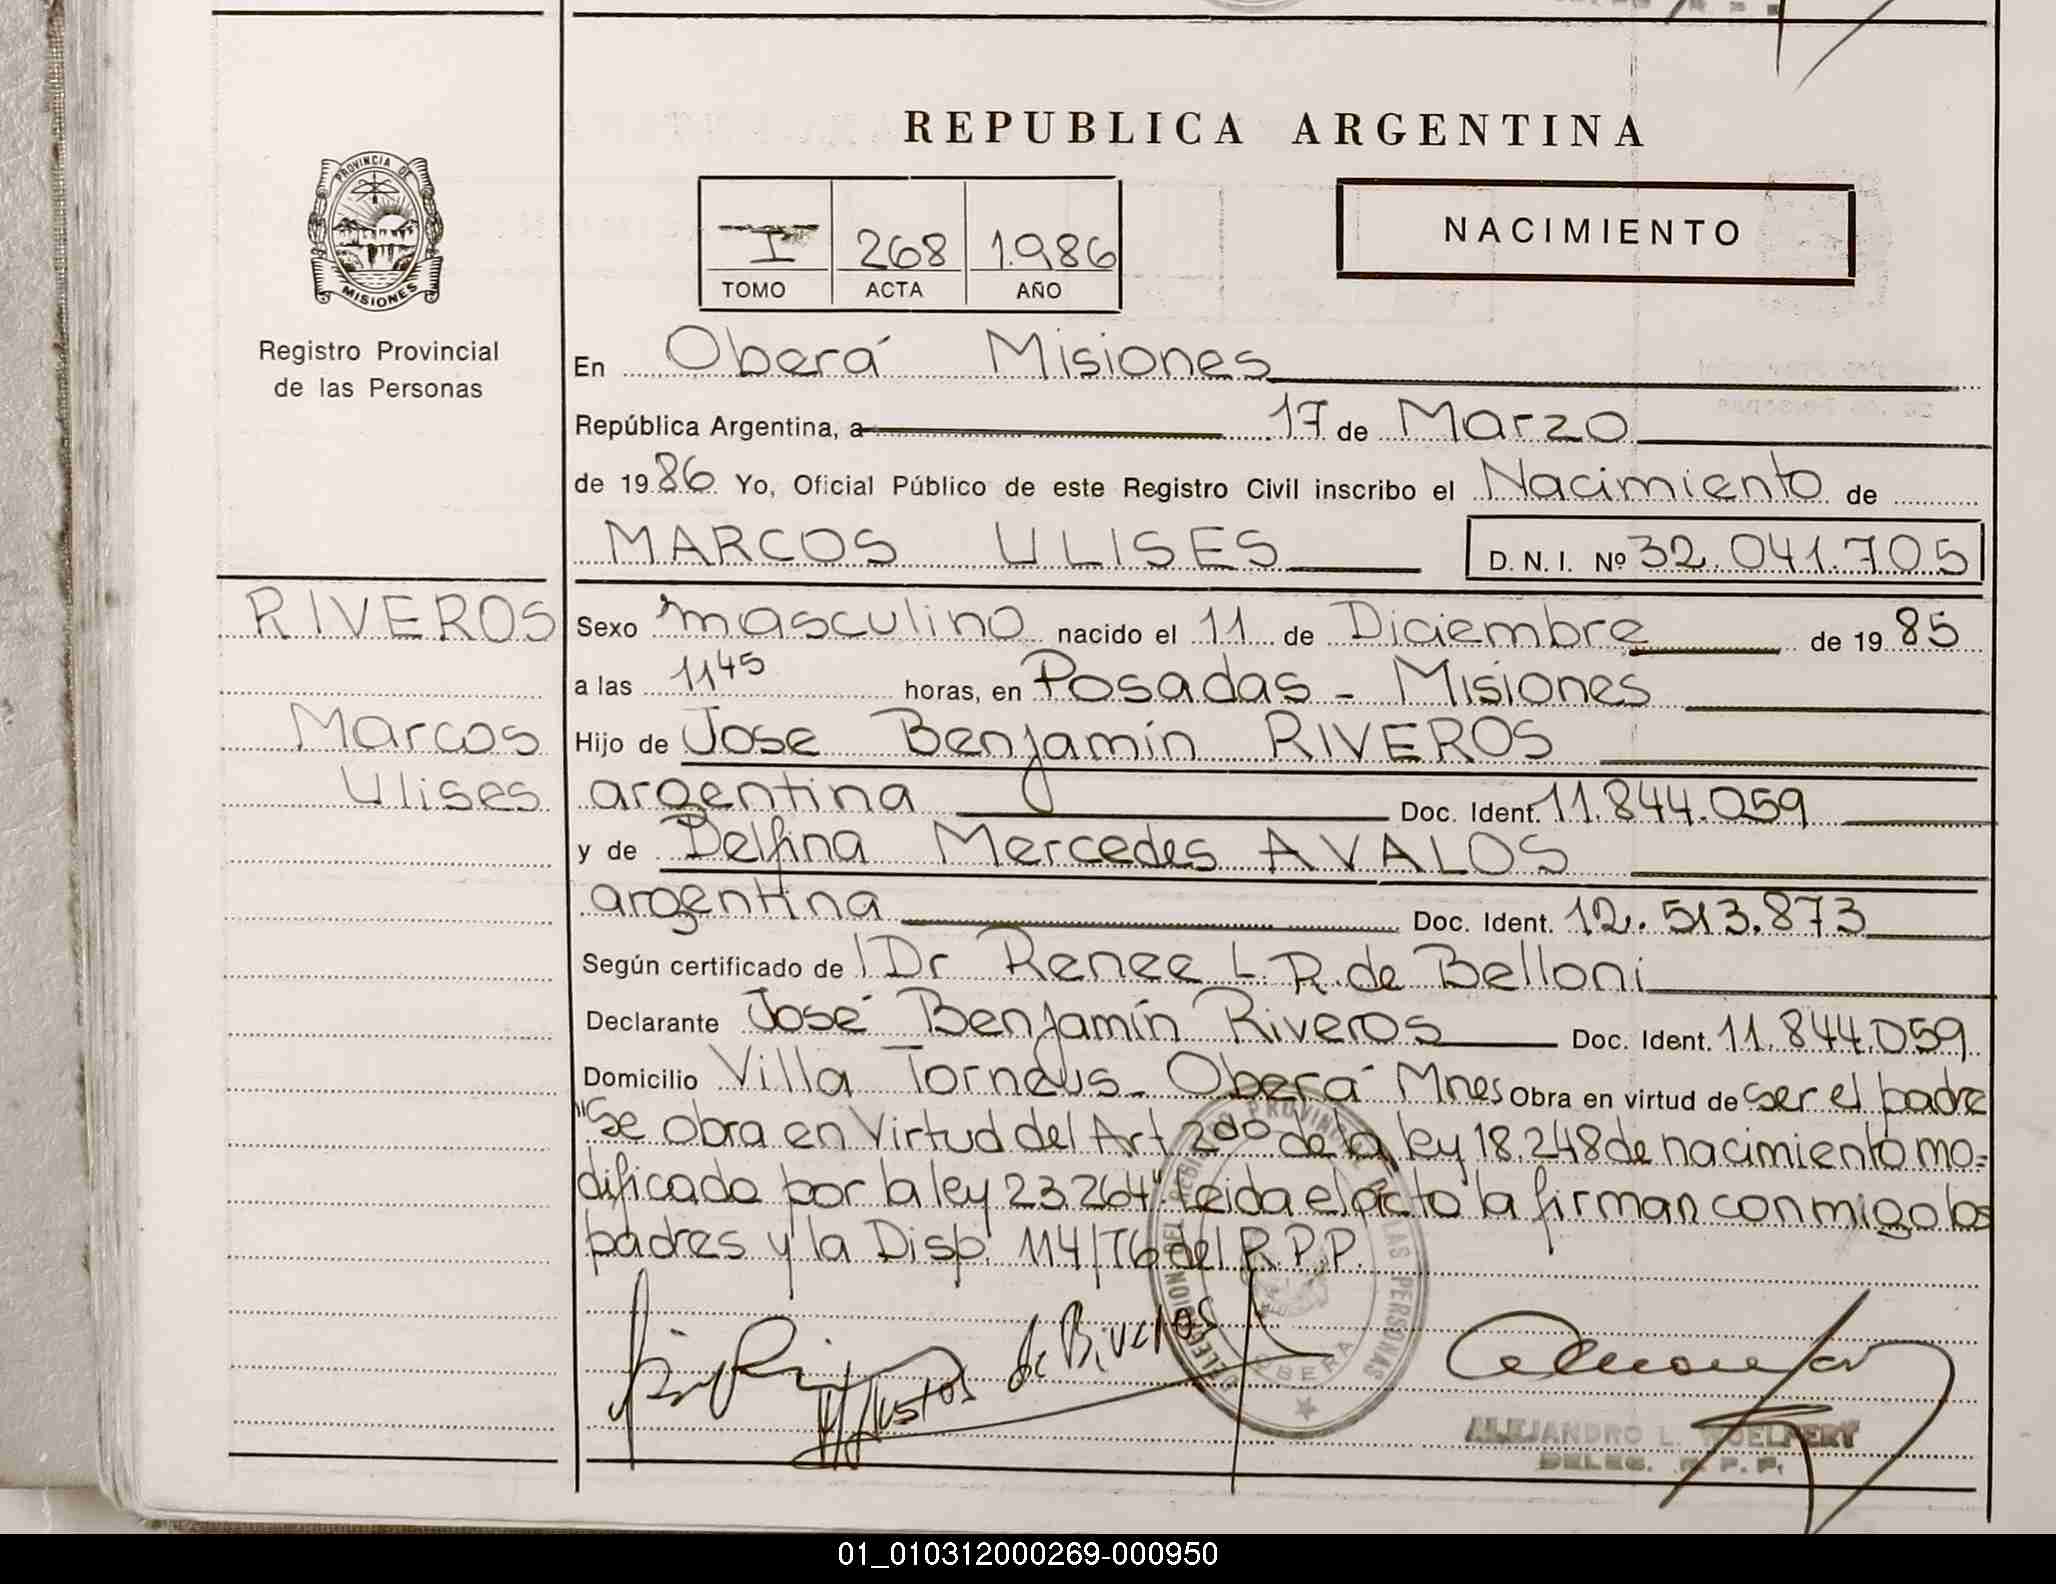 REPUBLICA ARGENTINA
PROVINCIA DE
MISIONES
Registro Provincial
de las Personas
I 268 1.986
TOMO ACTA AÑO
NACIMIENTO
En Oberá Misiones
República Argentina, a 17 de Marzo
de 1986 Yo, Oficial Público de este Registro Civil inscribo el Nacimiento de
MARCOS ULISES D. N. I. Nº 32.041.705
RIVEROS
Marcos
Ulises
Sexo masculino nacido el 11 de Diciembre de 1985
a las 1145 horas, en Posadas - Misiones
Hijo de Jose Benjamín RIVEROS
argentina Doc. Ident. 11.844.059
y de Delfina Mercedes AVALOS
argentina Doc. Ident. 12.513.873
Según certificado de Dr Renee L. R. de Belloni
Declarante José Benjamín Riveros Doc. Ident. 11.844.059
Domicilio Villa Torneus - Oberá Mnes Obra en virtud de ser el padre
"Se obra en Virtud del Art 2do de la ley 18.248 de nacimiento mo-
dificado por la ley 23.264". Leida el acto la firman conmigo los
padres y la Disp. 114/76 del R.P.P.
de Riveros
OBERA
ALEJANDRO L.
DELEG. R. P. P.
01_010312000269-000950